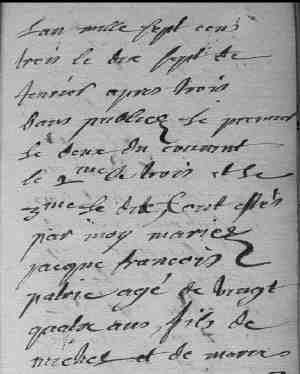 L'an mille sept cens
trois le dix sept de
fevrier apres trois
bans publiez le premier
le deux du courant
le 2me le trois et le
3me le dix estes
par moy mariez
jacque francois
patrie agé de vingt
quatre ans, fils de
michel et de marie